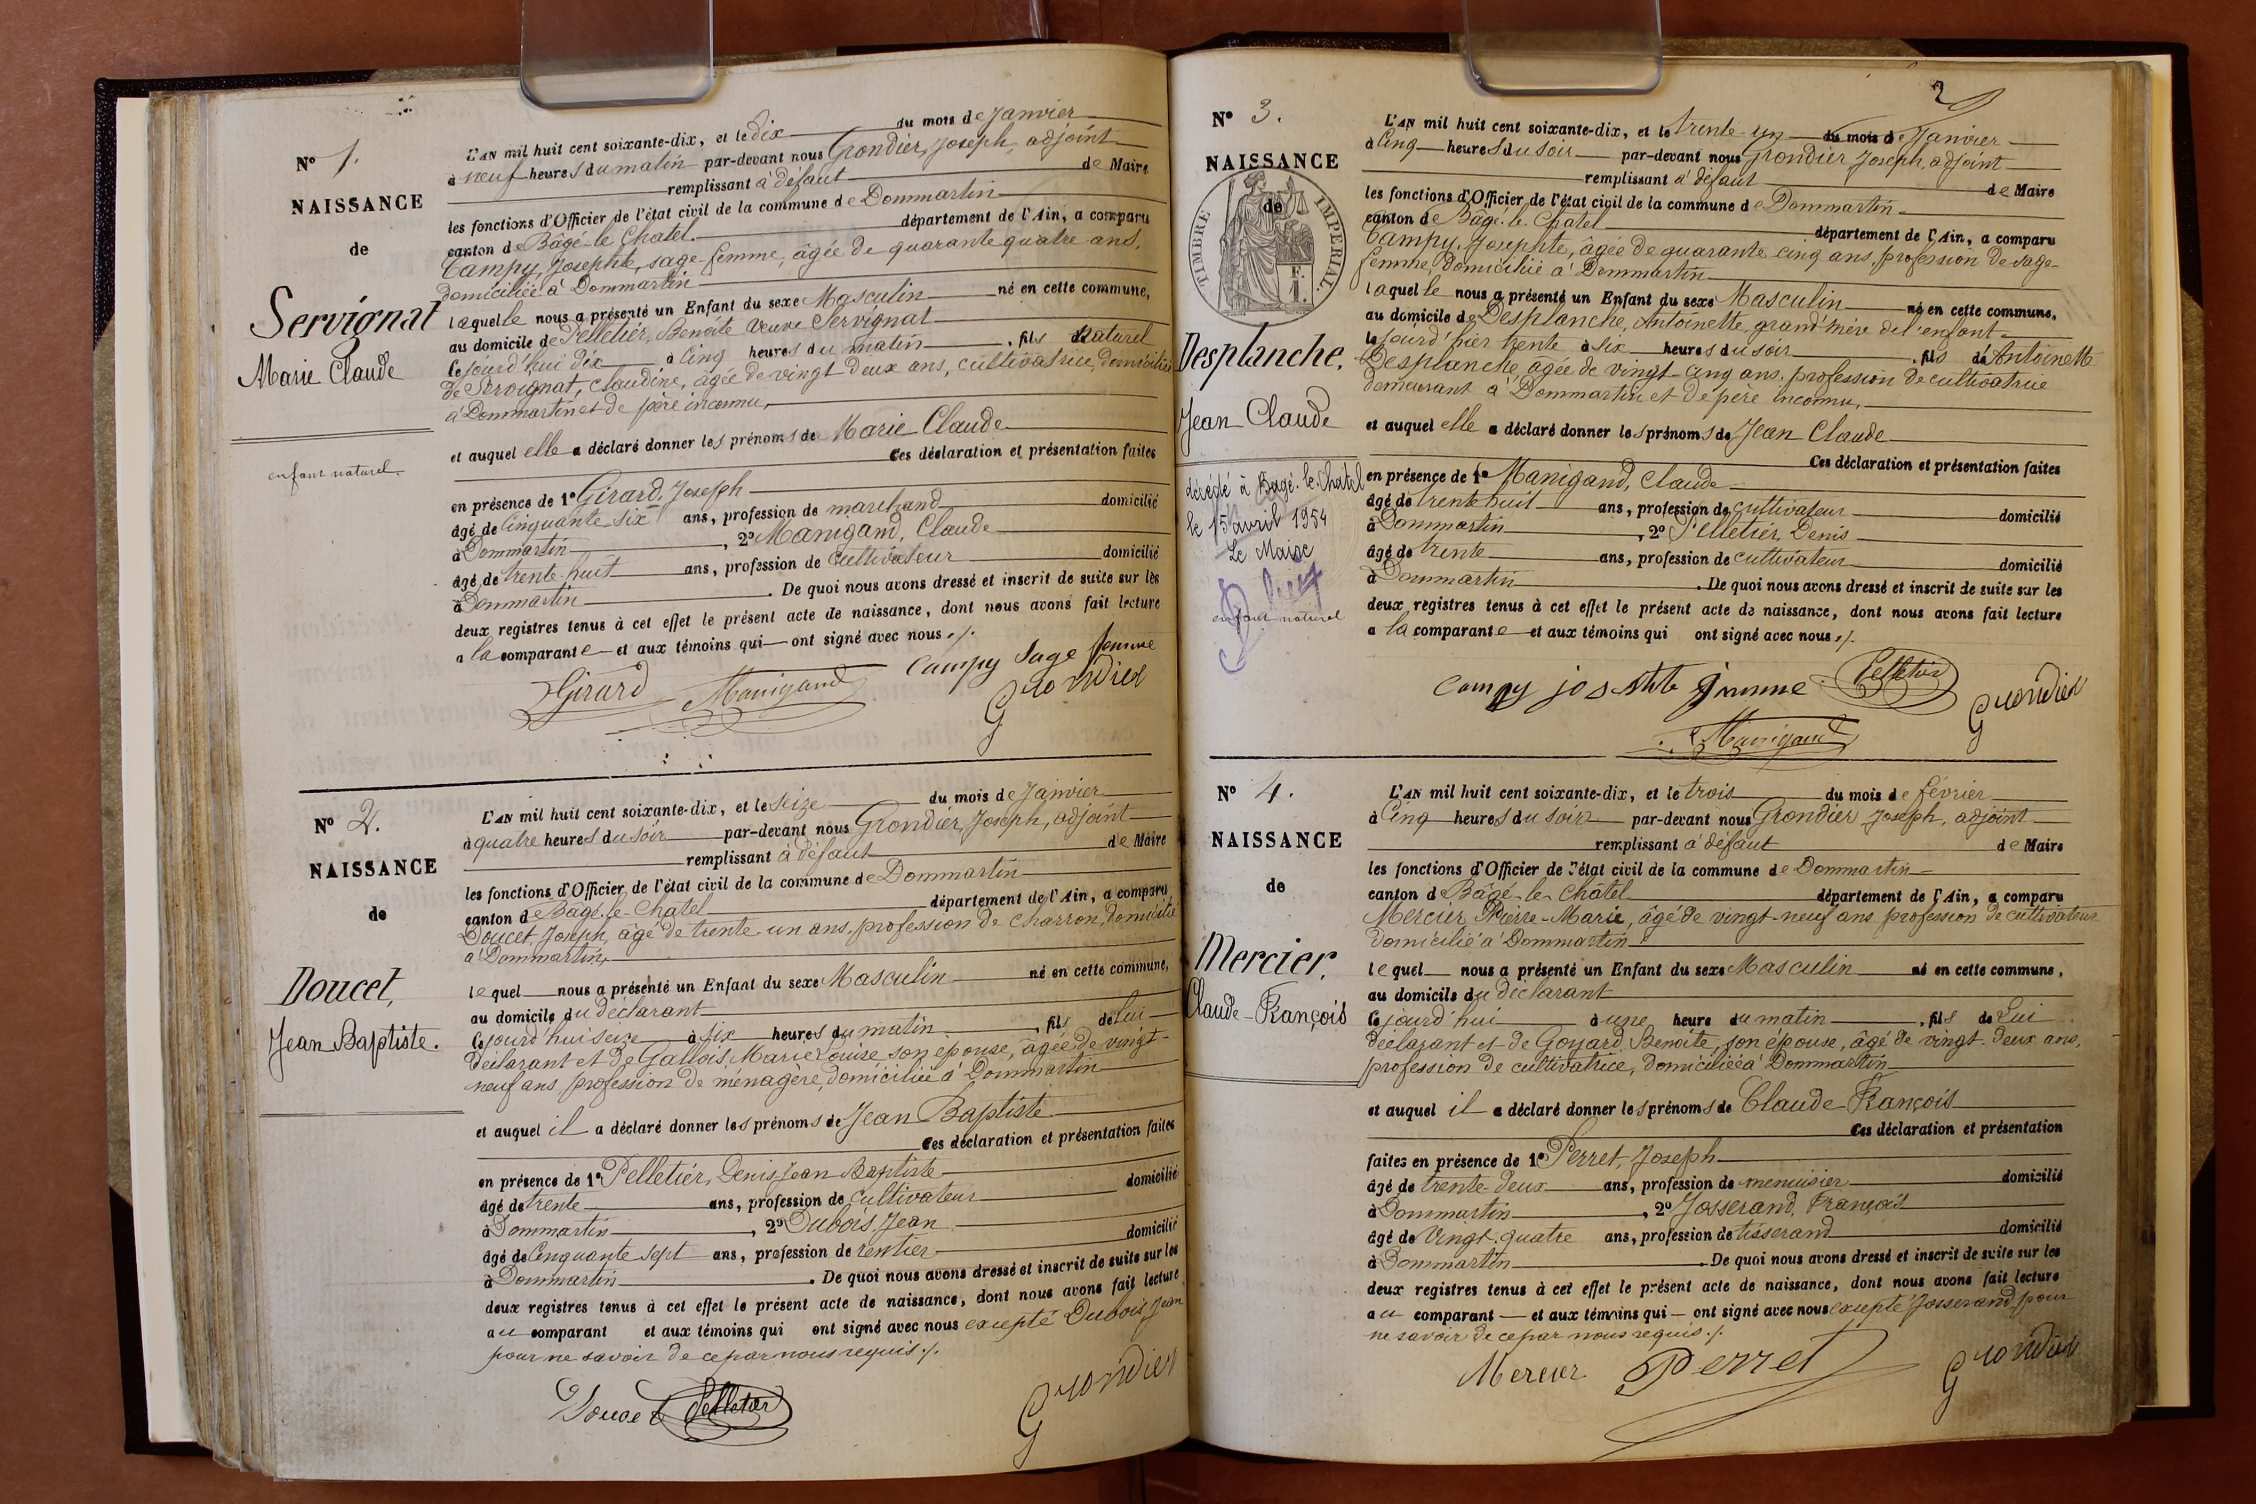 N° 1.
NAISSANCE
de
Servignat
Marie Claude
enfant naturel.
L'AN mil huit cent soixante-dix, et le dix du mois de Janvier
à neuf heures du matin par-devant nous Grondier, Joseph, adjoint
remplissant à défaut de Maire
les fonctions d'Officier de l'état civil de la commune de Dommartin
canton de Bâgé-le-Chatel. département de l'Ain, a comparu
Campy, Josephte, sage-femme, âgée de quarante quatre ans,
domiciliée à Dommartin
laquelle nous a présenté un Enfant du sexe Masculin né en cette commune,
au domicile de Pelletier, Benoite veuve Servignat
le jourd'hui dix à cinq heures du matin, fils Naturel
de Servignat, Claudine, âgée de vingt-deux ans, cultivatrice, domiciliée
à Dommartin et de père inconnu,
et auquel elle a déclaré donner les prénoms de Marie Claude
Ces déclaration et présentation faites
en présence de 1° Girard, Joseph
âgé de Cinquante-six ans, profession de marchand domicilié
à Dommartin, 2° Manigand, Claude
âgé de trente-huit ans, profession de cultivateur domicilié
à Dommartin. De quoi nous avons dressé et inscrit de suite sur les
deux registres tenus à cet effet le présent acte de naissance, dont nous avons fait lecture
a la comparante et aux témoins qui ont signé avec nous ./.
Girard Manigand Campy Sage femme
Grondier
N° 2.
NAISSANCE
de
Doucet,
Jean Baptiste.
L'AN mil huit cent soixante-dix, et le seize du mois de Janvier
à quatre heures du soir par-devant nous Grondier, Joseph, adjoint
remplissant à défaut de Maire
les fonctions d'Officier de l'état civil de la commune de Dommartin
canton de Bâgé-le-Chatel département de l'Ain, a comparu
Doucet, Joseph, âgé de trente-un ans, profession de charron, domicilié
à Dommartin,
lequel nous a présenté un Enfant du sexe Masculin né en cette commune,
au domicile du déclarant
le jourd'hui seize à six heures du matin, fils de lui
déclarant et de Gallois, Marie Louise son épouse, âgée de vingt-
neuf ans, profession de ménagère, domiciliée à Dommartin
et auquel il a déclaré donner les prénoms de Jean Baptiste
Ces déclaration et présentation faites
en présence de 1° Pelletier, Denis Jean Baptiste
âgé de trente ans, profession de cultivateur domicilié
à Dommartin, 2° Dubois, Jean
âgé de Cinquante sept ans, profession de rentier domicilié
à Dommartin. De quoi nous avons dressé et inscrit de suite sur les
deux registres tenus à cet effet le présent acte de naissance, dont nous avons fait lecture
au comparant et aux témoins qui ont signé avec nous excepté Dubois Jean
pour ne savoir de ce par nous requis ./.
Doucet Pelletier
Grondier
2
N° 3.
NAISSANCE
de
TIMBRE IMPERIAL.
Desplanche.
Jean Claude
décédé à Bagé-le-Chatel
le 15 avril 1954
Le Maire
enfant naturel
L'AN mil huit cent soixante-dix, et le trente-un du mois de Janvier
à Cinq heures du soir par-devant nous Grondier Joseph, adjoint
remplissant à défaut de Maire
les fonctions d'Officier de l'état civil de la commune de Dommartin
canton de Bâgé-le-Chatel département de l'Ain, a comparu
Campy, Josephte, âgée de quarante-cinq ans, profession de sage-
femme, domiciliée à Dommartin
laquelle nous a présenté un Enfant du sexe Masculin né en cette commune,
au domicile de Desplanche, Antoinette, grand'mère de l'enfant
le jourd'hier trente à six heures du soir, fils de Antoinette
Desplanche, âgée de vingt-cinq ans, profession de cultivatrice
demeurant à Dommartin et de père inconnu,
et auquel elle a déclaré donner les prénoms de Jean Claude
Ces déclaration et présentation faites
en présence de 1° Manigand, Claude
âgé de trente huit ans, profession de cultivateur domicilié
à Dommartin, 2° Pelletier, Denis
âgé de trente ans, profession de cultivateur domicilié
à Dommartin. De quoi nous avons dressé et inscrit de suite sur les
deux registres tenus à cet effet le présent acte de naissance, dont nous avons fait lecture
a la comparante et aux témoins qui ont signé avec nous ./.
Pelletier
Grondier
Manigand
N° 4.
NAISSANCE
de
Mercier,
Claude-François
L'AN mil huit cent soixante-dix, et le trois du mois de février
à Cinq heures du soir par-devant nous Grondier Joseph, adjoint
remplissant à défaut de Maire
les fonctions d'Officier de l'état civil de la commune de Dommartin
canton de Bâgé-le-Châtel département de l'Ain, a comparu
Mercier, Pierre-Marie, âgé de vingt-neuf ans, profession de cultivateur
domicilié à Dommartin
lequel nous a présenté un Enfant du sexe Masculin né en cette commune,
au domicile du déclarant
le jourd'hui à une heure du matin, fils de Lui
déclarant et de Goyard, Benoite, son épouse, âgé de vingt-deux ans,
profession de cultivatrice, domiciliée à Dommartin
et auquel il a déclaré donner les prénoms de Claude François
Ces déclaration et présentation
faites en présence de 1° Perret, Joseph
âgé de trente-deux ans, profession de menuisier domicilié
à Dommartin, 2° Josserand, François
âgé de Vingt-quatre ans, profession de tisserand domicilié
à Dommartin. De quoi nous avons dressé et inscrit de suite sur les
deux registres tenus à cet effet le présent acte de naissance, dont nous avons fait lecture
au comparant et aux témoins qui ont signé avec nous excepté Josserand, pour
ne savoir de ce par nous requis ./.
Mercier Perret Grondier